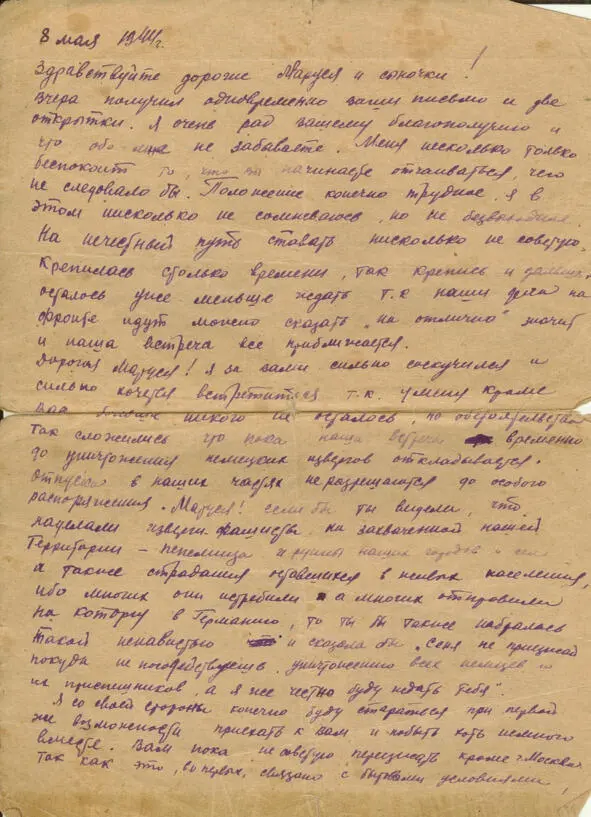 8 мая 1944г.
Здравствуйте дорогие Маруся и сыночки!
Вчера получил одновременно ваши письмо и две
открытки. Я очень рад вашему благополучию и
что обо мне не забываете. Меня несколько только
беспокоит то, что вы начинаете отчаиваться, чего
не следовало бы. Положение конечно трудное, я в
этом нисколько не сомневаюсь, но не безвыходное.
На нечестный путь ставать нисколько не советую.
Крепилась столько времени, так крепись и дальше,
осталось уже меньше ждать т.к наши дела на
фронте идут можно сказать „на отлично" значит
и наша встреча все приближается.
Дорогая Маруся! Я за вами сильно соскучился и
сильно хочется встретиться т.к. у меня кроме
вас никого не осталось, но обстоятельства
так сложились что пока наша встреча временно
до уничтожения немецких извергов откладывается.
Отпуска в наших частях не разрешаются до особого
распоряжения. Маруся! если бы ты видели, что
наделали изверги-фашисты на захваченной нашей
Территории – пепелища и руины наших городов и сел
а также страдания оставшихся в живых населения,
ибо многих они истребили а многих отправили
на каторгу в Германию, то ты бы также набралась
такой ненавистью и сказала бы „Сеня не приезжай
покуда не посодействуешь уничтожению всех немцев и
их приспешников, а я же честно буду ждать тебя".
Я со своей стороны конечно буду стараться при первой
же возможности приехать к вам и побыть хоть немного
вместе. Вам пока не советую переезжать кроме „Москвы"
так как это, во первых, связано с бытовыми условиями,